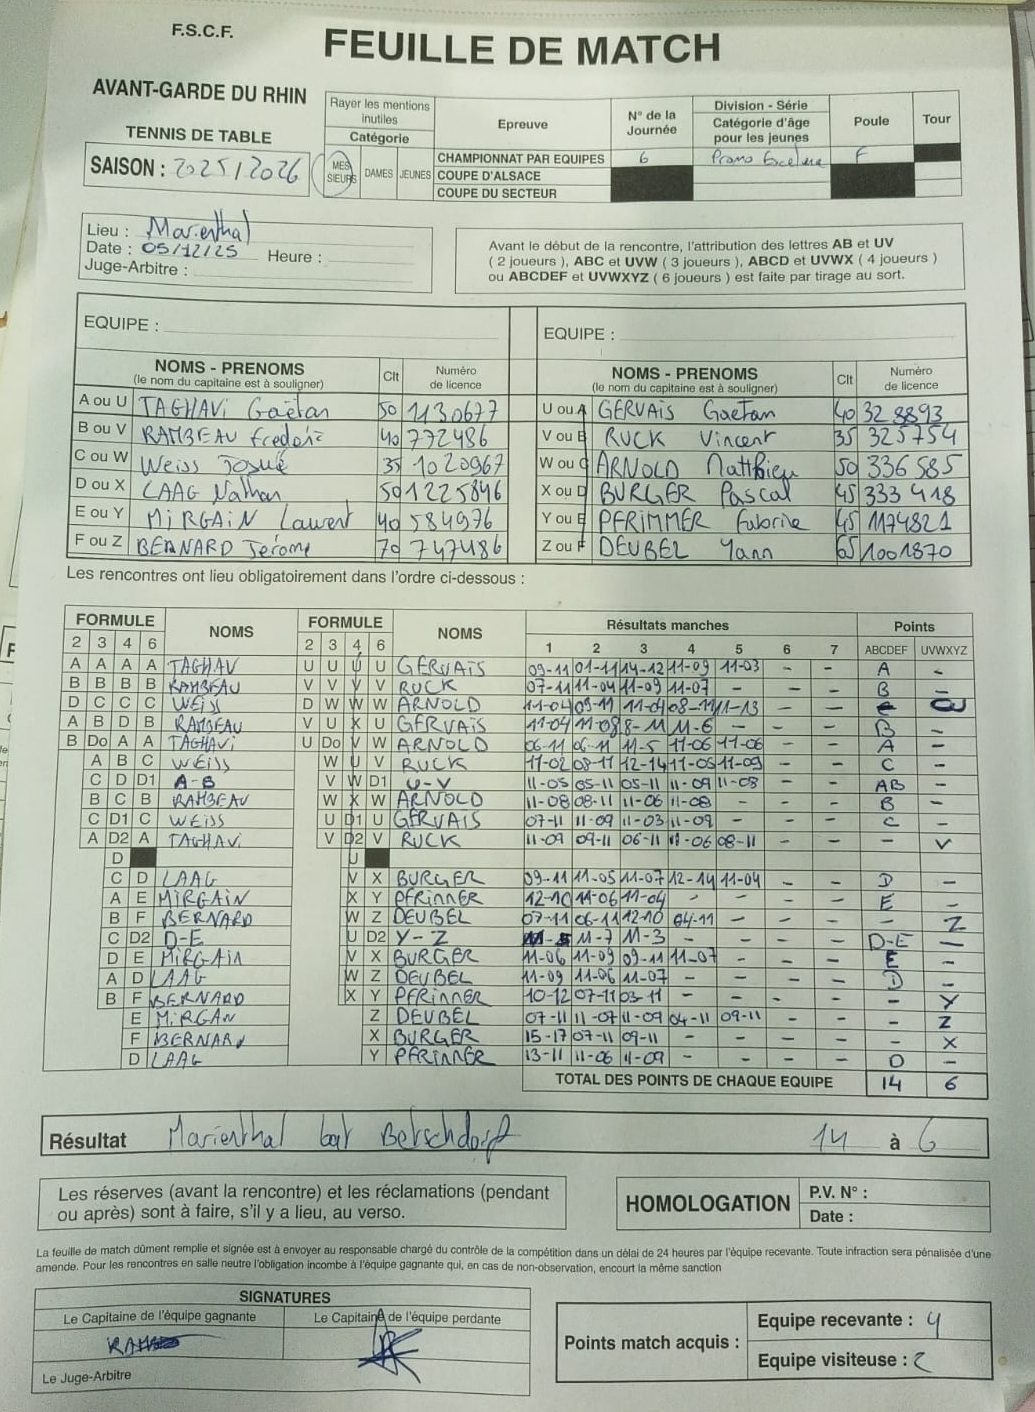 F.S.C.F.
FEUILLE DE MATCH
AVANT-GARDE DU RHIN
TENNIS DE TABLE
SAISON : 2025/2026
Rayer les mentions inutiles
Catégorie
MESSIEURS DAMES JEUNES
Epreuve N° de la Journée Division - Série Catégorie d'âge pour les jeunes Poule Tour
CHAMPIONNAT PAR EQUIPES 6 Promo F
COUPE D'ALSACE
COUPE DU SECTEUR
Lieu : Marienthal
Date : 05/12/25 Heure :
Juge-Arbitre :
Avant le début de la rencontre, l'attribution des lettres AB et UV
( 2 joueurs ), ABC et UVW ( 3 joueurs ), ABCD et UVWX ( 4 joueurs )
ou ABCDEF et UVWXYZ ( 6 joueurs ) est faite par tirage au sort.
EQUIPE : EQUIPE :
NOMS - PRENOMS (le nom du capitaine est à souligner) Clt Numéro de licence NOMS - PRENOMS (le nom du capitaine est à souligner) Clt Numéro de licence
A ou U TAGHAVi Gaëtan 50 1130677 U ou A GERVAIS Gaetan 40 328893
B ou V RAMBEAU Frédéric 40 772486 V ou B RUCK Vincent 35 325754
C ou W Weiss Josué 35 1020967 W ou C ARNOLD Matthieu 50 336585
D ou X LAAG Nathan 50 1225846 X ou D BURGER Pascal 45 333418
E ou Y MiRGAiN Laurent 40 584976 Y ou E PFRIMMER Fabrice 45 1174821
F ou Z BERNARD Jérome 70 747486 Z ou F DEUBEL Yann 65 1001870
Les rencontres ont lieu obligatoirement dans l'ordre ci-dessous :
FORMULE NOMS FORMULE NOMS Résultats manches Points
2 3 4 6 2 3 4 6 1 2 3 4 5 6 7 ABCDEF UVWXYZ
A A A A TAGHAV U U U U GERVAIS 09-11 01-11 14-12 11-09 11-03 - - A -
B B B B RAMBEAU V V V V RUCK 07-11 11-04 11-09 11-07 - - - B -
D C C C WEISS D W W W ARNOLD 11-04 09-11 11-04 08-11 11-13 - -
A B D B RAMBEAU V U X U GERVAIS 11-04 11-08 8-11 11-6 - - - B -
B Do A A TAGHAVi U Do V W ARNOLD 06-11 06-11 11-5 11-06 11-06 - - A -
A B C WEISS W U V RUCK 11-02 08-11 12-14 11-05 11-09 - - C -
C D D1 A-B V W D1 U-V 11-05 05-11 05-11 11-09 11-08 - - AB -
B C B RAMBEAU W X W ARNOLD 11-08 08-11 11-06 11-08 - - - B -
C D1 C WEISS U D1 U GERVAIS 07-11 11-09 11-03 11-09 - - - C -
A D2 A TAGHAVi V D2 V RUCK 11-09 09-11 06-11 11-06 08-11 - - - V
D U
C D LAAG V X BURGER 09-11 11-05 11-07 12-14 11-04 - - D -
A E MIRGAIN X Y PFRIMMER 12-10 11-06 11-04 - - - - E -
B F BERNARD W Z DEUBEL 07-11 06-11 12-10 04-11 - - - - Z
C D2 D-E U D2 Y-Z 11-7 11-3 - - - - D-E -
D E MIRGAIN V X BURGER 11-06 11-09 09-11 11-07 - - - E -
A D LAAG W Z DEUBEL 11-09 11-06 11-07 - - - - D -
B F BERNARD X Y PFRIMMER 10-12 07-11 03-11 - - - - - Y
E MIRGAN Z DEUBEL 07-11 11-07 11-09 04-11 09-11 - - - Z
F BERNARD X BURGER 15-17 07-11 09-11 - - - - - X
D LAAG Y PFRIMMER 13-11 11-06 11-09 - - - - D -
TOTAL DES POINTS DE CHAQUE EQUIPE 14 6
Résultat Marienthal bat Betschdorf 14 à 6
Les réserves (avant la rencontre) et les réclamations (pendant
ou après) sont à faire, s'il y a lieu, au verso.
HOMOLOGATION
P.V. N° :
Date :
La feuille de match dûment remplie et signée est à envoyer au responsable chargé du contrôle de la compétition dans un délai de 24 heures par l'équipe recevante. Toute infraction sera pénalisée d'une
amende. Pour les rencontres en salle neutre l'obligation incombe à l'équipe gagnante qui, en cas de non-observation, encourt la même sanction
SIGNATURES
Le Capitaine de l'équipe gagnante Le Capitaine de l'équipe perdante
Le Juge-Arbitre
Points match acquis :
Equipe recevante : 4
Equipe visiteuse : 2